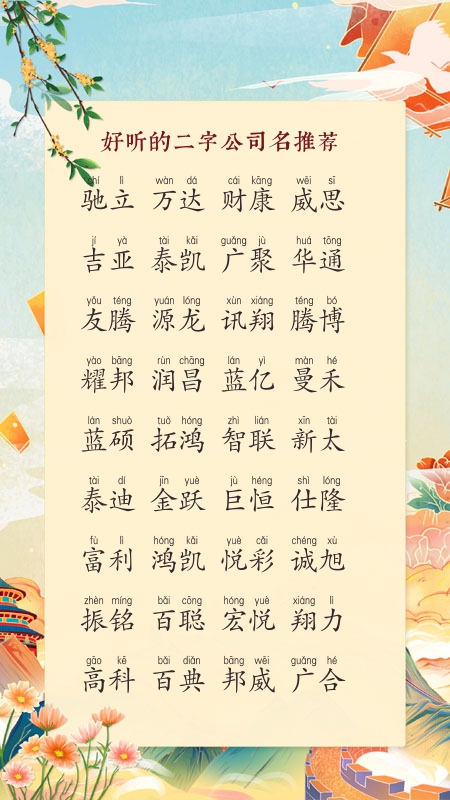 好听的二字公司名推荐
chí lì wàn dá cái kāng wēi sī
驰立 万达 财康 威思
jí yà tài kǎi guǎng jù huá tōng
吉亚 泰凯 广聚 华通
yǒu téng yuán lóng xùn xiáng téng bó
友腾 源龙 讯翔 腾博
yào bāng rùn chāng lán yì màn hé
耀邦 润昌 蓝亿 曼禾
lán shuò tuò hóng zhì lián xīn tài
蓝硕 拓鸿 智联 新太
tài dí jīn yuè jù héng shì lóng
泰迪 金跃 巨恒 仕隆
fù lì hóng kǎi yuè cǎi chéng xù
富利 鸿凯 悦彩 诚旭
zhèn míng bǎi cōng hóng yuè xiáng lì
振铭 百聪 宏悦 翔力
gāo kē bǎi diǎn bāng wēi guǎng hé
高科 百典 邦威 广合